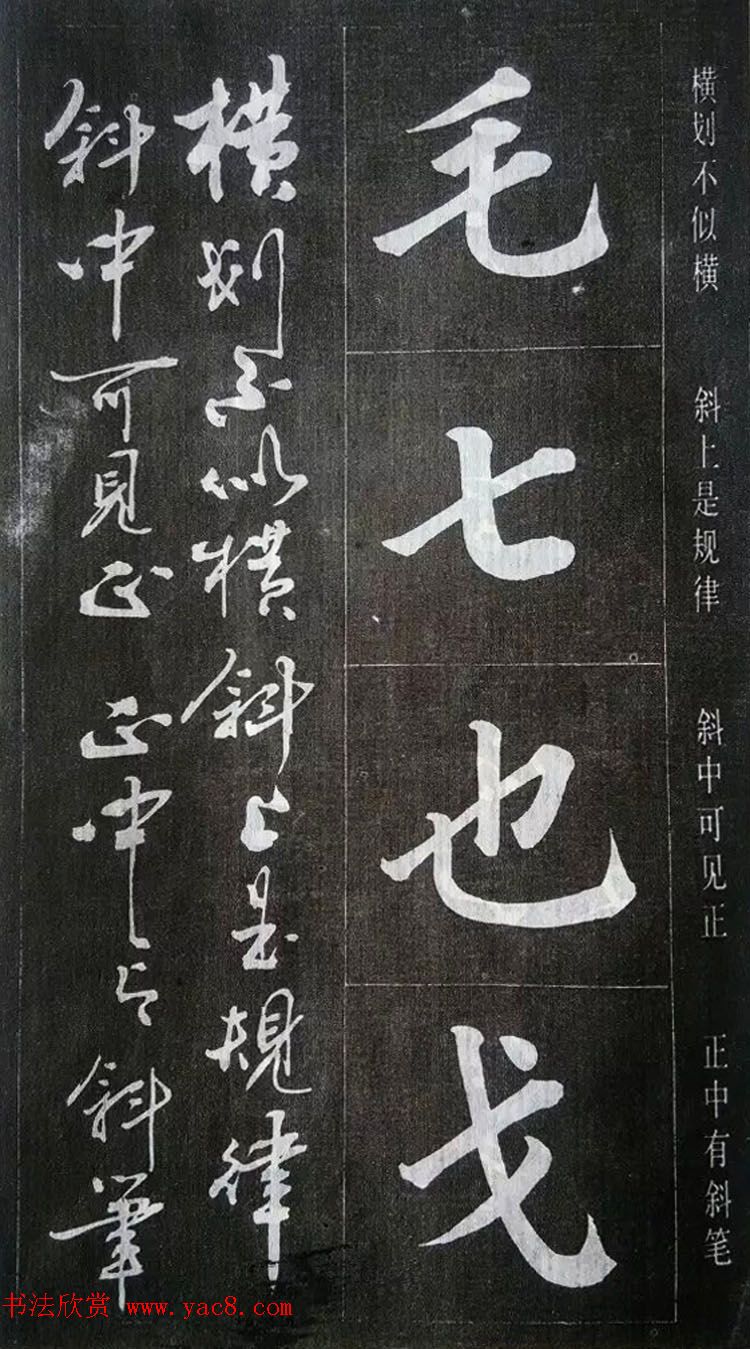 横划不似横 斜上是规律 斜中可见正 正中有斜笔
毛七也戈
横划不似横斜上是規律
斜中可見正 正中有斜筆
书法欣赏 www.yac8.com